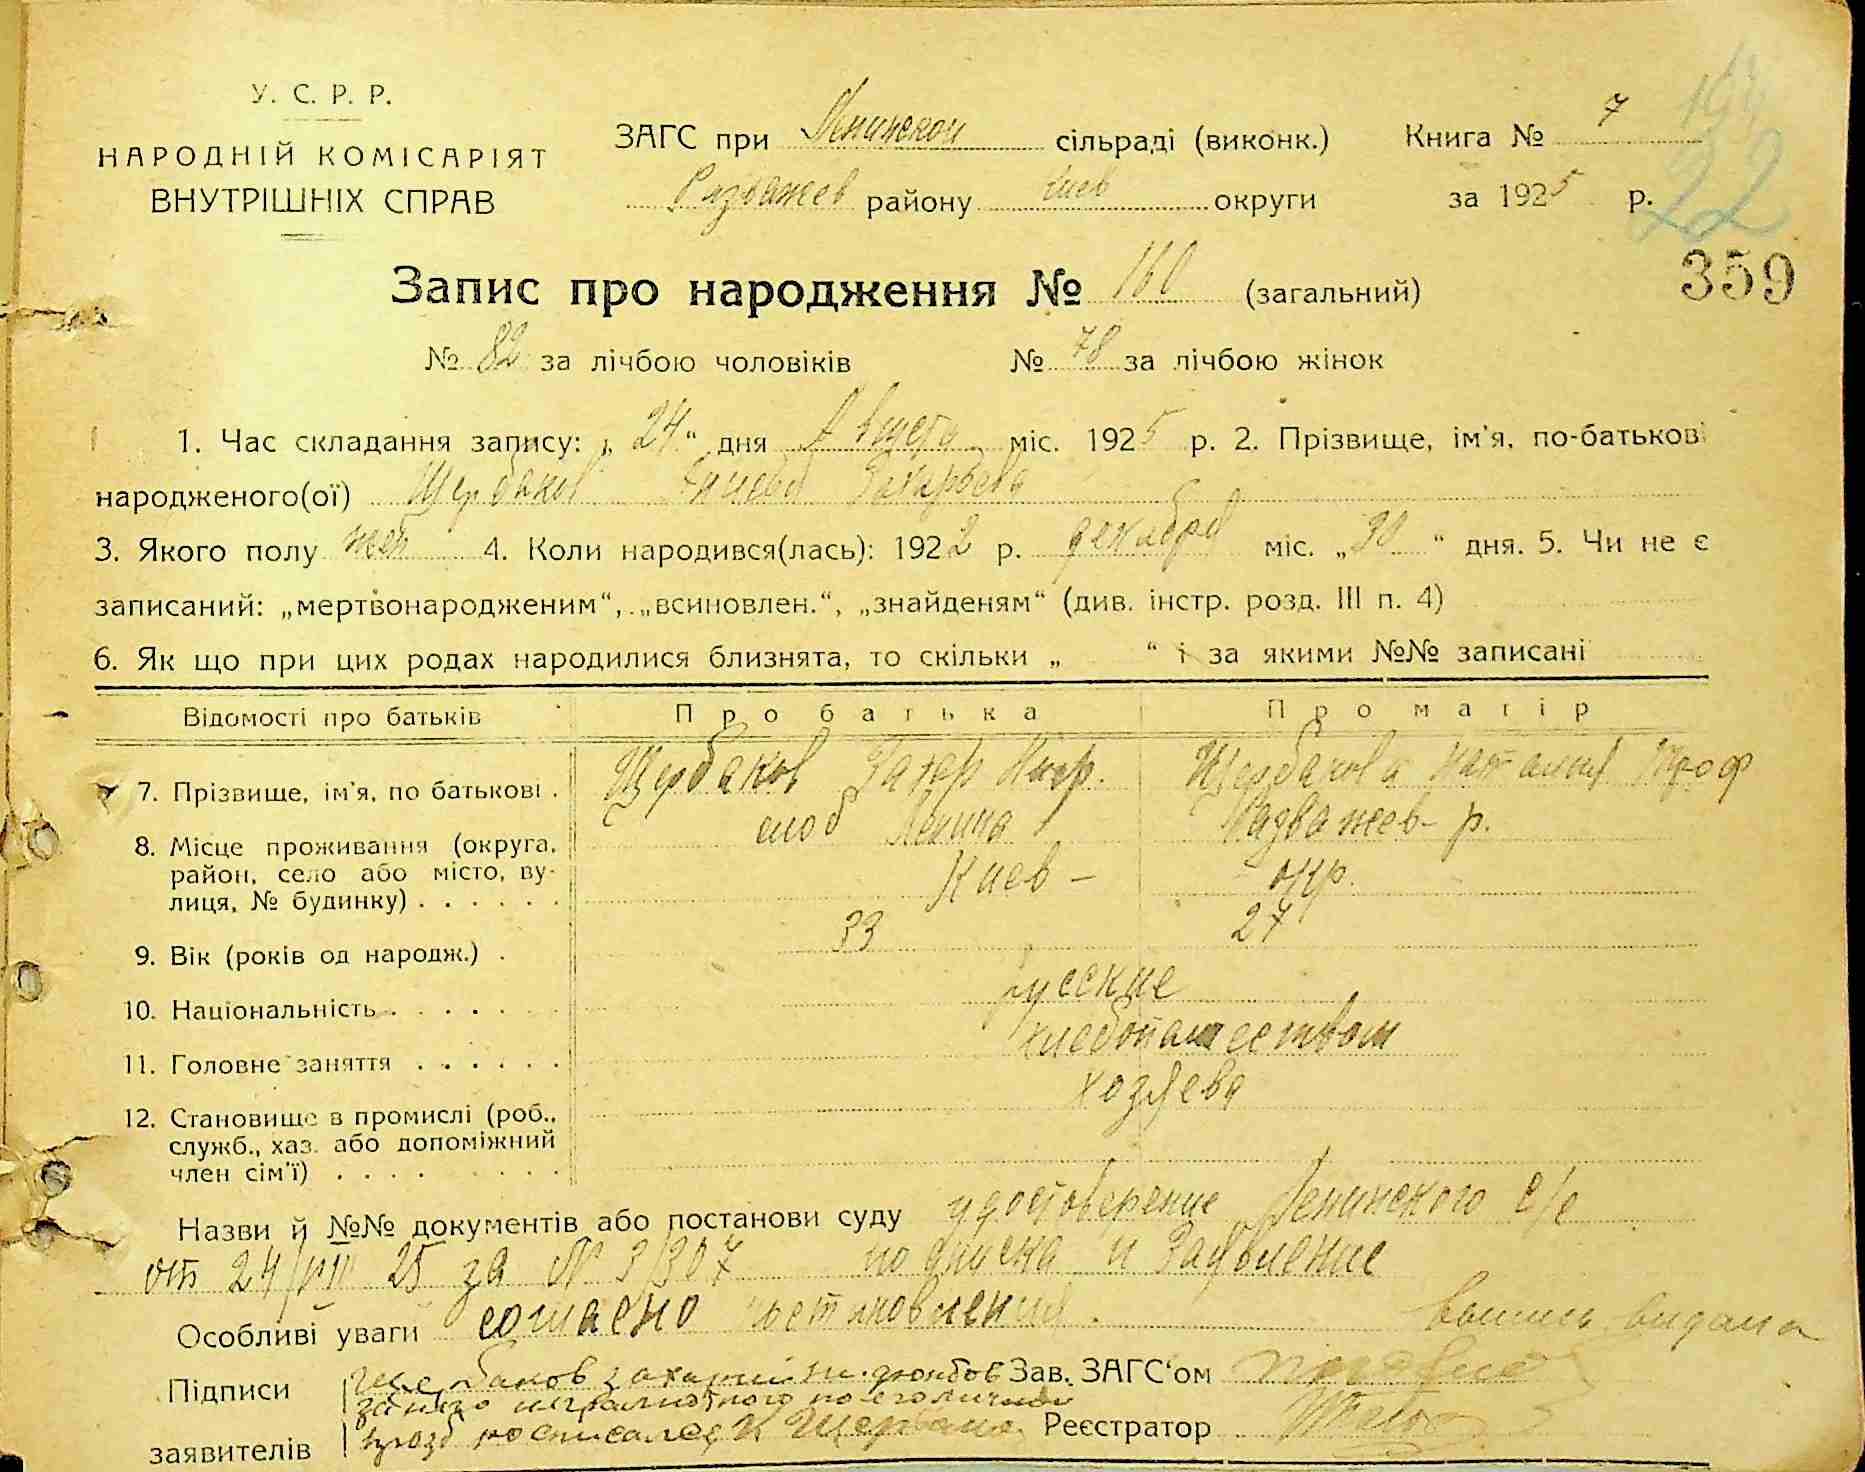 У. С. Р. Р.
НАРОДНІЙ КОМІСАРІЯТ
ВНУТРІШНІХ СПРАВ
ЗАГС при Ленинской сільраді (виконк.) Книга № 7
Розважев району Киев округи за 1925 р.
22
359
Запис про народження № 160 (загальний)
№ 82 за лічбою чоловіків № 78 за лічбою жінок
1. Час складання запису: „24“ дня Августа міс. 1925 р. 2. Прізвище, ім'я, по-батькові
народженого(ої) Щербаков Захарьева
3. Якого полу жен 4. Коли народився(лась): 1922 р. декабря міс. „30“ дня. 5. Чи не є
записаний: „мертвонародженим“, „всиновлен.“, „знайденям“ (див. інстр. розд. III п. 4)
6. Як що при цих родах народилися близнята, то скільки „ “ і за якими №№ записані
Відомості про батьків Про батька Про матір
7. Прізвище, ім'я, по батькові . Щербаков Захар Никф. Щербакова Наталия Проф
8. Місце проживання (округа, слоб Ленина Розважев- р.
район, село або місто, ву-
лиця, № будинку) . . . . . . Киев – окр.
9. Вік (років од народж.) . 33 27
10. Національність . . . . . . . русские
11. Головне заняття . . . . . . хлебопашеством
12. Становище в промислі (роб., хозяева
служб., хаз. або допоміжний
член сім'ї) . . . . . . . . .
Назви й №№ документів або постанови суду удостоверение Ленинского с/с
от 24/VIII 25 за № 3/307 подписка и заявление
Особливі уваги согласно постановления. выпись видана
Підписи Щербаков Зав. ЗАГС'ом
за него неграмотного по его личной
заявителів прозб росписался К Реєстратор